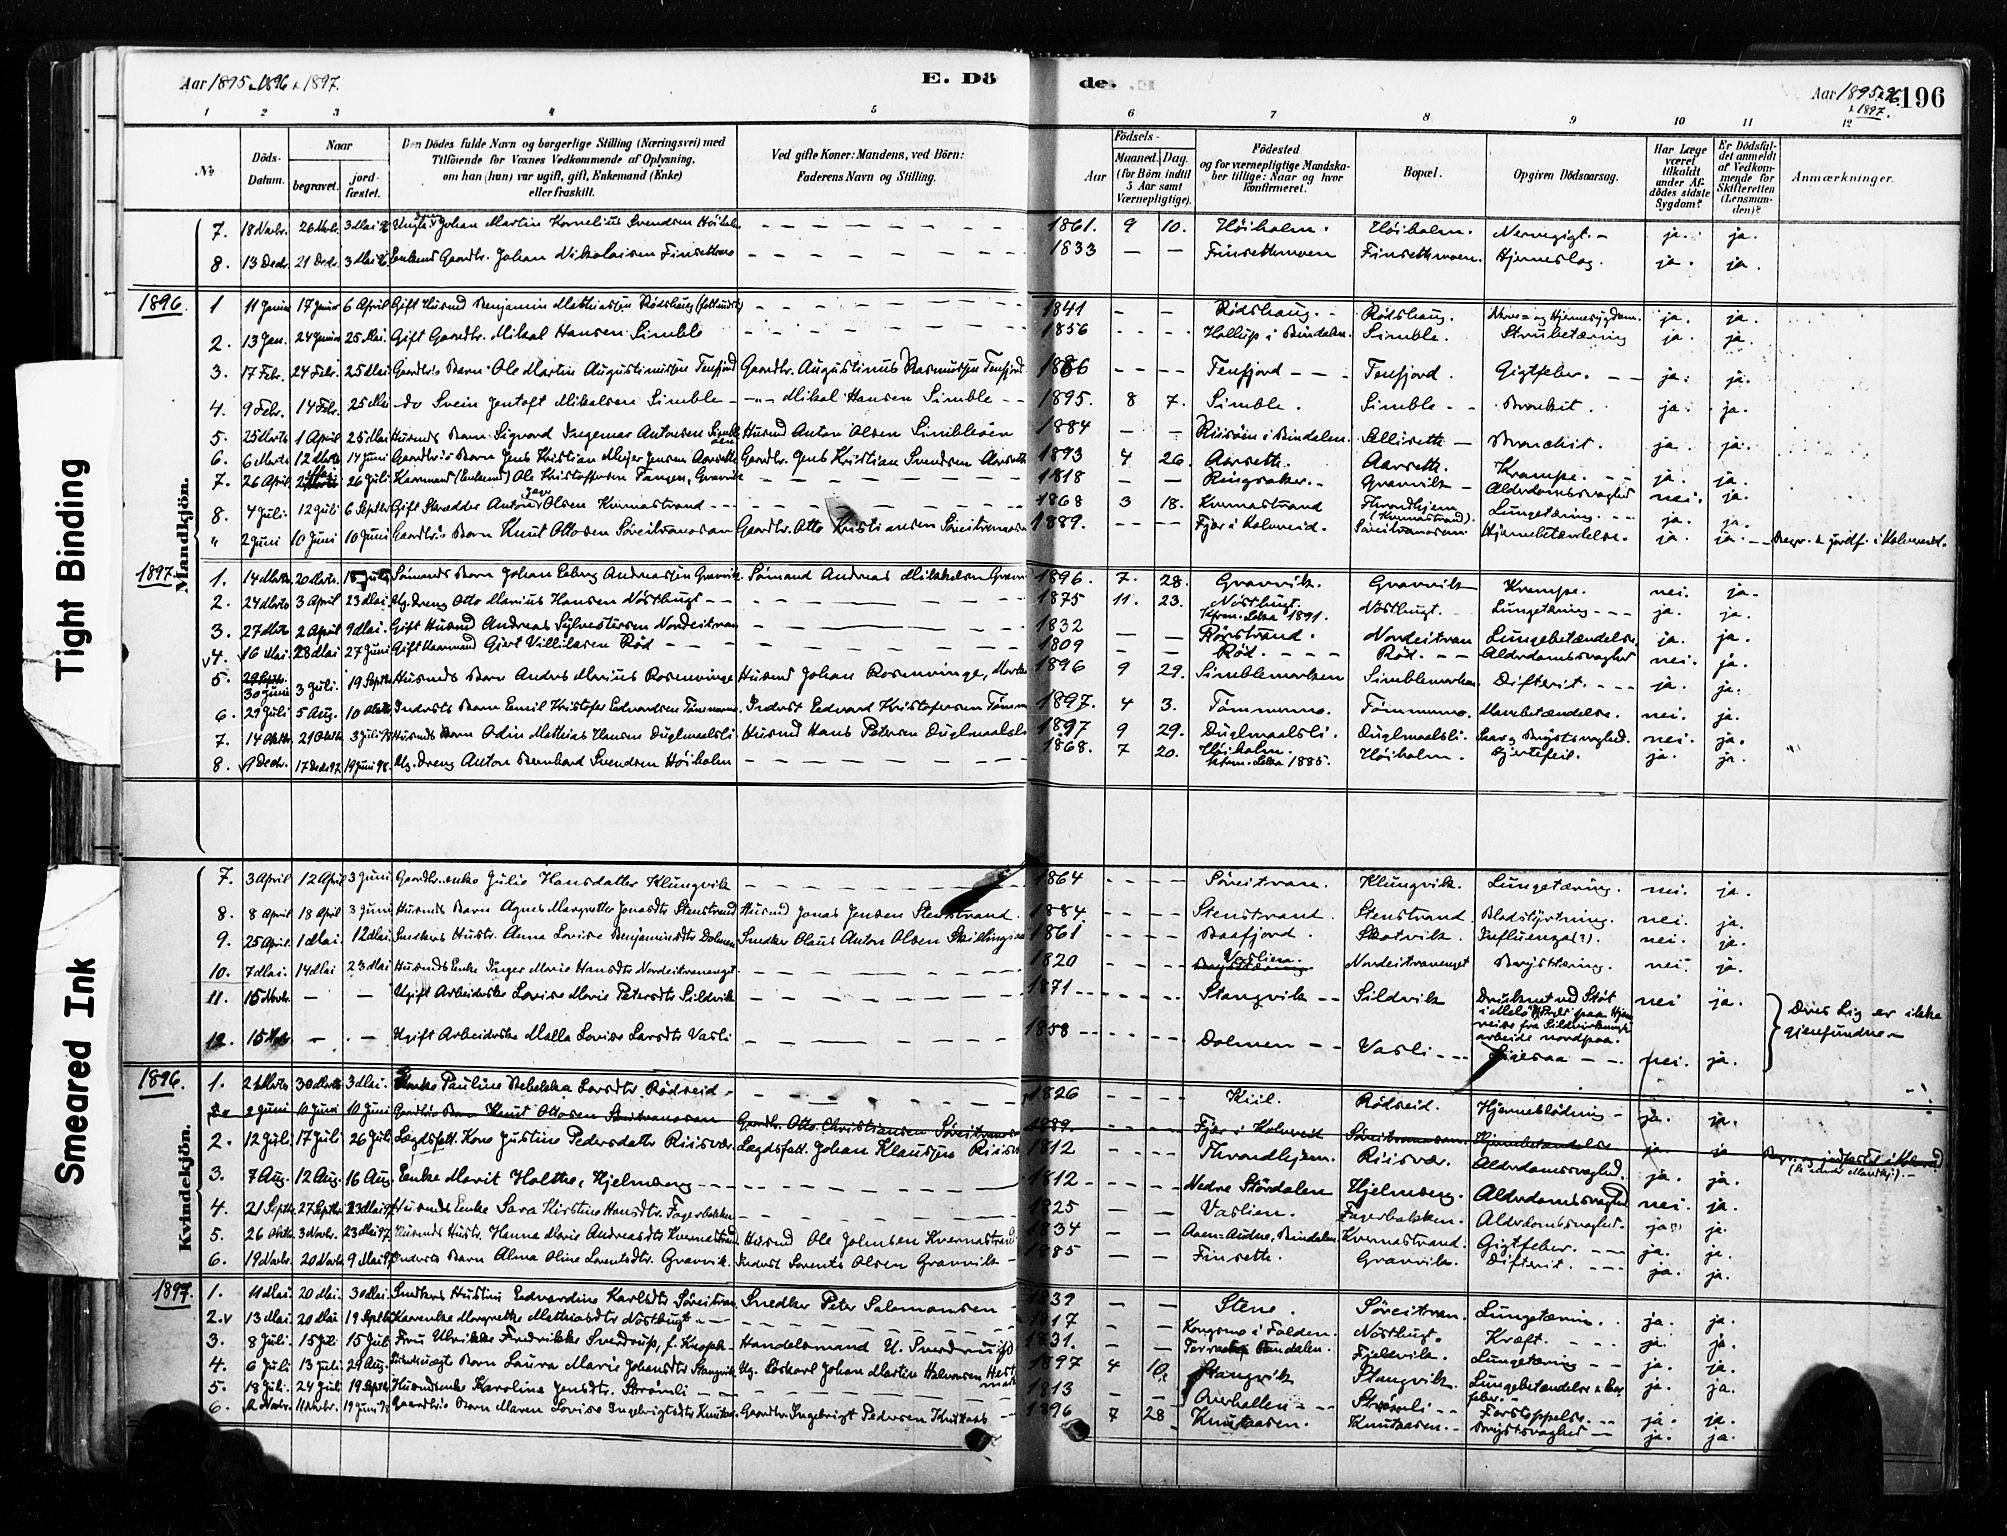 Aar 1895, 1896 & 1897.
E. Dö
de.
Aar 1895, 96 & 1897.
196
1 2 3 4 5 6 7 8 9 10 11 12
No
Döds-Datum.
Naar
begravet.
jord-fæstet.
Den Dödes fulde Navn og borgerlige Stilling (Næringsvei) med
Tilföiende for Voxnes Vedkommende af Oplysning,
om han (hun) var ugift, gift, Enkemand (Enke)
eller fraskilt.
Ved gifte Koner: Mandens, ved Börn:
Faderens Navn og Stilling.
Födsels-
Aar
Maaned.
Dag.
(for Börn indtil 5 Aar samt Værnepligtige).
Födested
og for værnepligtige Mandska-
ber tillige: Naar og hvor
konfirmeret.
Bopæl.
Opgiven Dödsaarsag.
Har Læge været tilkaldt under Afdödes sidste Sygdom?
Er Dödsfaldet anmeldt af Vedkommende for Skifteretten (Lensmanden)?
Anmærkninger.
Mandkjön.
7. 18 Novbr. 26 Novbr. 3 Mai 96 Johan Martin Kornelius Svendsen Höiholm 1861. 9 10. Höiholm. Höiholm. Nervegigt. ja. ja.
8. 13 Decbr. 21 Decbr. 3 Mai 96 Enkemd Gaardbr. Johan Nikolaisen Finsethmoen 1833 Finsethmoen Finsethmoen. Hjerneslag. ja. ja.
1896
1 11 Januar 17 Januar 6 April Gift Husmd Benjamin Mathiassen Rödshaug 1841 Rödshaug. Rödshaug. Nerve- og Hjernesygdom. ja. ja.
2. 13 Jan. 24 Januar 25 Mai. Gift Gaardbr. Mikal Hansen Simble 1856 i Bindalen. Simble. Strubetæring ja. ja.
3. 17 Febr. 24 Febr. 25 Mai Gaardbr's Barn Ole Martin Augustinussen Tenfjord Gaardbr. Augustinus Rasmussen Tenfjord 1886 Tenfjord Tenfjord. Gigtfeber. ja. ja.
4. 9 Febr. 14 Febr. 25 Mai do Svein Jentoft Mikalsen Simble Mikal Hansen Simble 1895. 8 7. Simble. Simble Bronkit. ja. ja.
5. 25 Marts 1 April 25 Mai Husmds Barn Sigvard Ingemar Antonsen Husmd Anton Olsen Simbleöen 1884 i Bindalen. Bronchit. ja. ja.
6. 6 Marts 12 Marts 14 Juni Gaardbr's Barn Jens Kristian Meyer Jensen Aarseth Gaardbr. Jens Kristian Svendsen Aarseth 1893 4 26. Aarseth. Aarseth. Krampe. ja. ja.
7. 26 April 26 Juli Kaarmand (Enkemd) Ole Kristoffersen Tangen, Gravvik 1818 Ringsaker. Gravvik Alderdomssvaghed nei. ja.
8. 4 Juli. 12 Juli 6 Septbr Gift Skrædder Anton Olsen Kvernastrand 1868 3 18. Kvernastrand Throndhjem (Kvernastrand). Lungetæring. ja. ja.
" 2 Juni 10 Juni 10 Juni Gaardbr's Barn Knut Ottosen Söreitranosan Gaardbr. Otto Kristiansen Söreitranosan 1889. Fjær i Kolvereid. Söreitranosen Hjernebetændelse. ja. ja. Begr. & jordf. i Kolvereid.
1897.
1. 14 Marts 20 Marts 18 Juli Sömands Barn Johan Andreassen Gravvik Sömand Andreas Mikkelsen 1896. 7. 28. Gravvik. Gravvik Krampe. nei. ja.
2. 24 Marts 3 April 23 Mai. Ug. Dreng Otto Marius Hansen Nöstbugt 1875 11. 23. Nöstbugt. Kfrm. Leka 1891. Nöstbugt. Lungetæring ja. ja.
3. 27 Marts 2 April 9 Mai. Gift Husmd Andreas Sylvestersen Nordeitran 1832 Rörstrand. Nordeitran Lungebetændelse. ja. ja.
4. 16 Mai. 28 Mai 27 Juni Gift Kaarmand Gjert Röd 1809 Röd. Röd. Alderdomssvaghed nei. ja.
5. 29 Septbr. 30 Juni 3 Juli. 19 Septbr Husmds Barn Anders Marius Rosenvinge Husmd Johan Rosenvinge, 1896 9 29. Simblemarken Simblemarken. Difterit. ja. ja.
6. 29 Juli 5 Aug. 10 Oktbr Inderst's Barn Emil Kristofer Edvardsen Tömmermo Inderst Edvard Kristofersen 1897. 4 3. Tömmermo. Tömmermo. Mavebetændelse. nei. ja.
7. 14 Oktbr. 21 Oktbr. 3 Juli 98 Husmds Barn Odin Mathias Hansen Duglmaalsli Husmd Hans Petersen Duglmaalsli 1897 9 29. Duglmaalsli. Duglmaalsli. Brystsvaghed. nei. ja.
8. 9 Decbr. 17 Decbr 97 19 Juni 98. Ug. Dreng Anton Bernhard Svendsen Höiholm 1868. 7 20. Höiholm. Kfrm. Leka 1885. Höiholm. Hjertefeil. ja. ja.
Kvindekjön.
7. 3 April 12 April 3 Juni Gaardbr.enke Julie Hansdatter Klungvik 1864 Söreitran. Klungvik. Lungetæring. nei. ja.
8. 8 April 18 April 3 Juni Husmds Barn Agnes Margrethe Jonasdtr Stenstrand Husmd Jonas Jensen Stenstrand. 1884. Stenstrand. Stenstrand. Blodstyrtning. nei. ja.
9. 25 April. 1 Mai. 12 Mai. Snedkers Hustr. Anna Lovise Benjaminsdtr Dolmen Snedker Olaus Anton Olsen 1861 Baafjord. Skotvik. Influenza(?). nei. ja.
10. 7 Mai. 14 Mai 23 Mai Husmds Enke Inger Marie Hansdtr Nordeitranenget 1820 Vaslien. Nordeitranenget Brysttæring. nei. ja.
11. 15 Novbr. Ugift Arbeiderske Lovise Marie Petersdtr Sildvik 1871 Stangvik Sildvik Druknet ved Stöt nei ja. Deres Lig er ikke gjenfundne
12. 15 Nov. Ugift Arbeiderske Malla Lovise Larsdtr Vasli 1858 Dolmen Vasli nei. ja.
1896.
1. 21 Marts 30 Marts 3 Mai. Enke Pauline Rebekka Larsdtr Rödseid 1826 Kiil. Rödseid. Hjerneblödning ja. ja.
2 Juni 10 Juni 10 Juni Gaardbr's Barn Knut Ottosen Söreitranosan Gaardbr. Otto Christiansen Söreitranosan 1889. Fjær i Kolvereid Söreitranosan Hjernebetændelse ja. ja
2. 12 Juli. 17 Juli 26 Juli Lægdsfatt. Kone Justine Pedersdatter Riisvær Lægdsfatt. Johan Klausen 1812 Throndhjem. Riisvær. Alderdomssvaghed. ja. ja.
3. 7 Aug. 12 Aug. 16 Aug. Enke Marit Holthe, Hjelmberg 1812 Nedre Stördalen Hjelmberg. Alderdomssvaghed nei. ja.
4. 21 Septbr. 27 Septbr 23 Mai 97 Husmds Enke Sara Kirstine Hansdtr. Fagerbakken 1825 Vaslien. Fagerbakken. Alderdomssvaghed. ja(?) ja.
5. 26 Oktbr 3 Novbr. 23 Mai 97 Husmds Hustr. Hanna Marie Andreasdtr Kvernastrand Husmd Ole Johnsen Kvernastrand 1834 Bindalen Kvernastrand. Gigtfeber. ja. ja.
6. 19 Novbr. 20 Novbr. 9 Mai 97 Inderst's Barn Alma Oline Lorentsdtr. Gravvik Inderst Lorents Olsen Gravvik 1885 Finseth. Gravvik. Difterit. ja. ja.
1897.
1. 11 Mai. 20 Mai. 30 Mai. Snedkers Hustru Edvardine Karlsdtr Söreitran. Snedker Peter Salomonsen 1839 Stene. Söreitran. Lungetæring. ja. ja.
2. v 13 Mai. 20 Mai 19 Septbr Kaarenke Margrethe Mathiasdtr Nöstbugt 1817 Kongsmo i Folden. Nöstbugt. Kræft. ja. ja.
3. 8 Juli. 15 Juli 15 Juli. Fru Ulrikke Fredrikke Sverdrup, f. Knoph Handelsmand U. Sverdrup 1831. Bindalen. Fjeldvik. Lungetæring ja. ja.
4. 6 Juli 13 Juli 29 Aug. Barn Laura Marie Johansdtr Stangvik Ug. Löskarl Johan Martin Halvorsen 1897 4 10. Stangvik Stangvik. Lungebetændelse ja. ja.
5. 18 Juli. 24 Juli 19 Septbr Husmdsenke Karoline Jensdtr. Strömli 1813 Overhallen Strömli Forstoppelse. ja. ja.
6. 2 Novbr. 11 Novbr. 19 Juni 98 Gaardbr's Barn Maren Lovise Ingebrigtsdtr Gaardbr. Ingebrigt Pedersen 1896 7 28 Knutaasen. Knutaasen. Brystsvaghed ja. ja.
Tight Binding
Smeared Ink